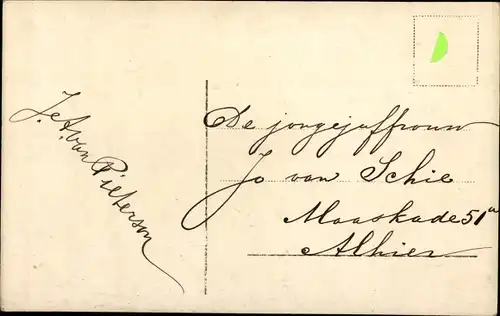 J. A. van Pieterson
De jongejuffrouw
Jo van Schie
Maaskade 51a
Alhier